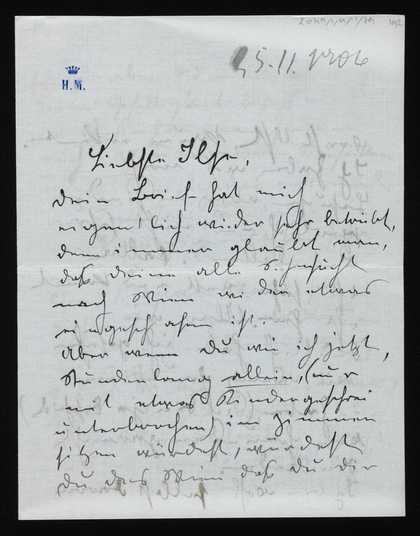 25.11.1906
H.M.
Liebste Ilse,
dein Brief hat mich
eigentlich wieder sehr betrübt,
denn immer glaubt man,
daß deine alte Sehnsucht
nach Wien wieder etwas
eingeschlafen ist.
Aber wenn du wie ich jetzt,
stundenlang allein, (nur
mit etwas Kindergeschrei
unterbrochen) im Zimmer
sitzen würdest, würdest
du das Wien das du dir